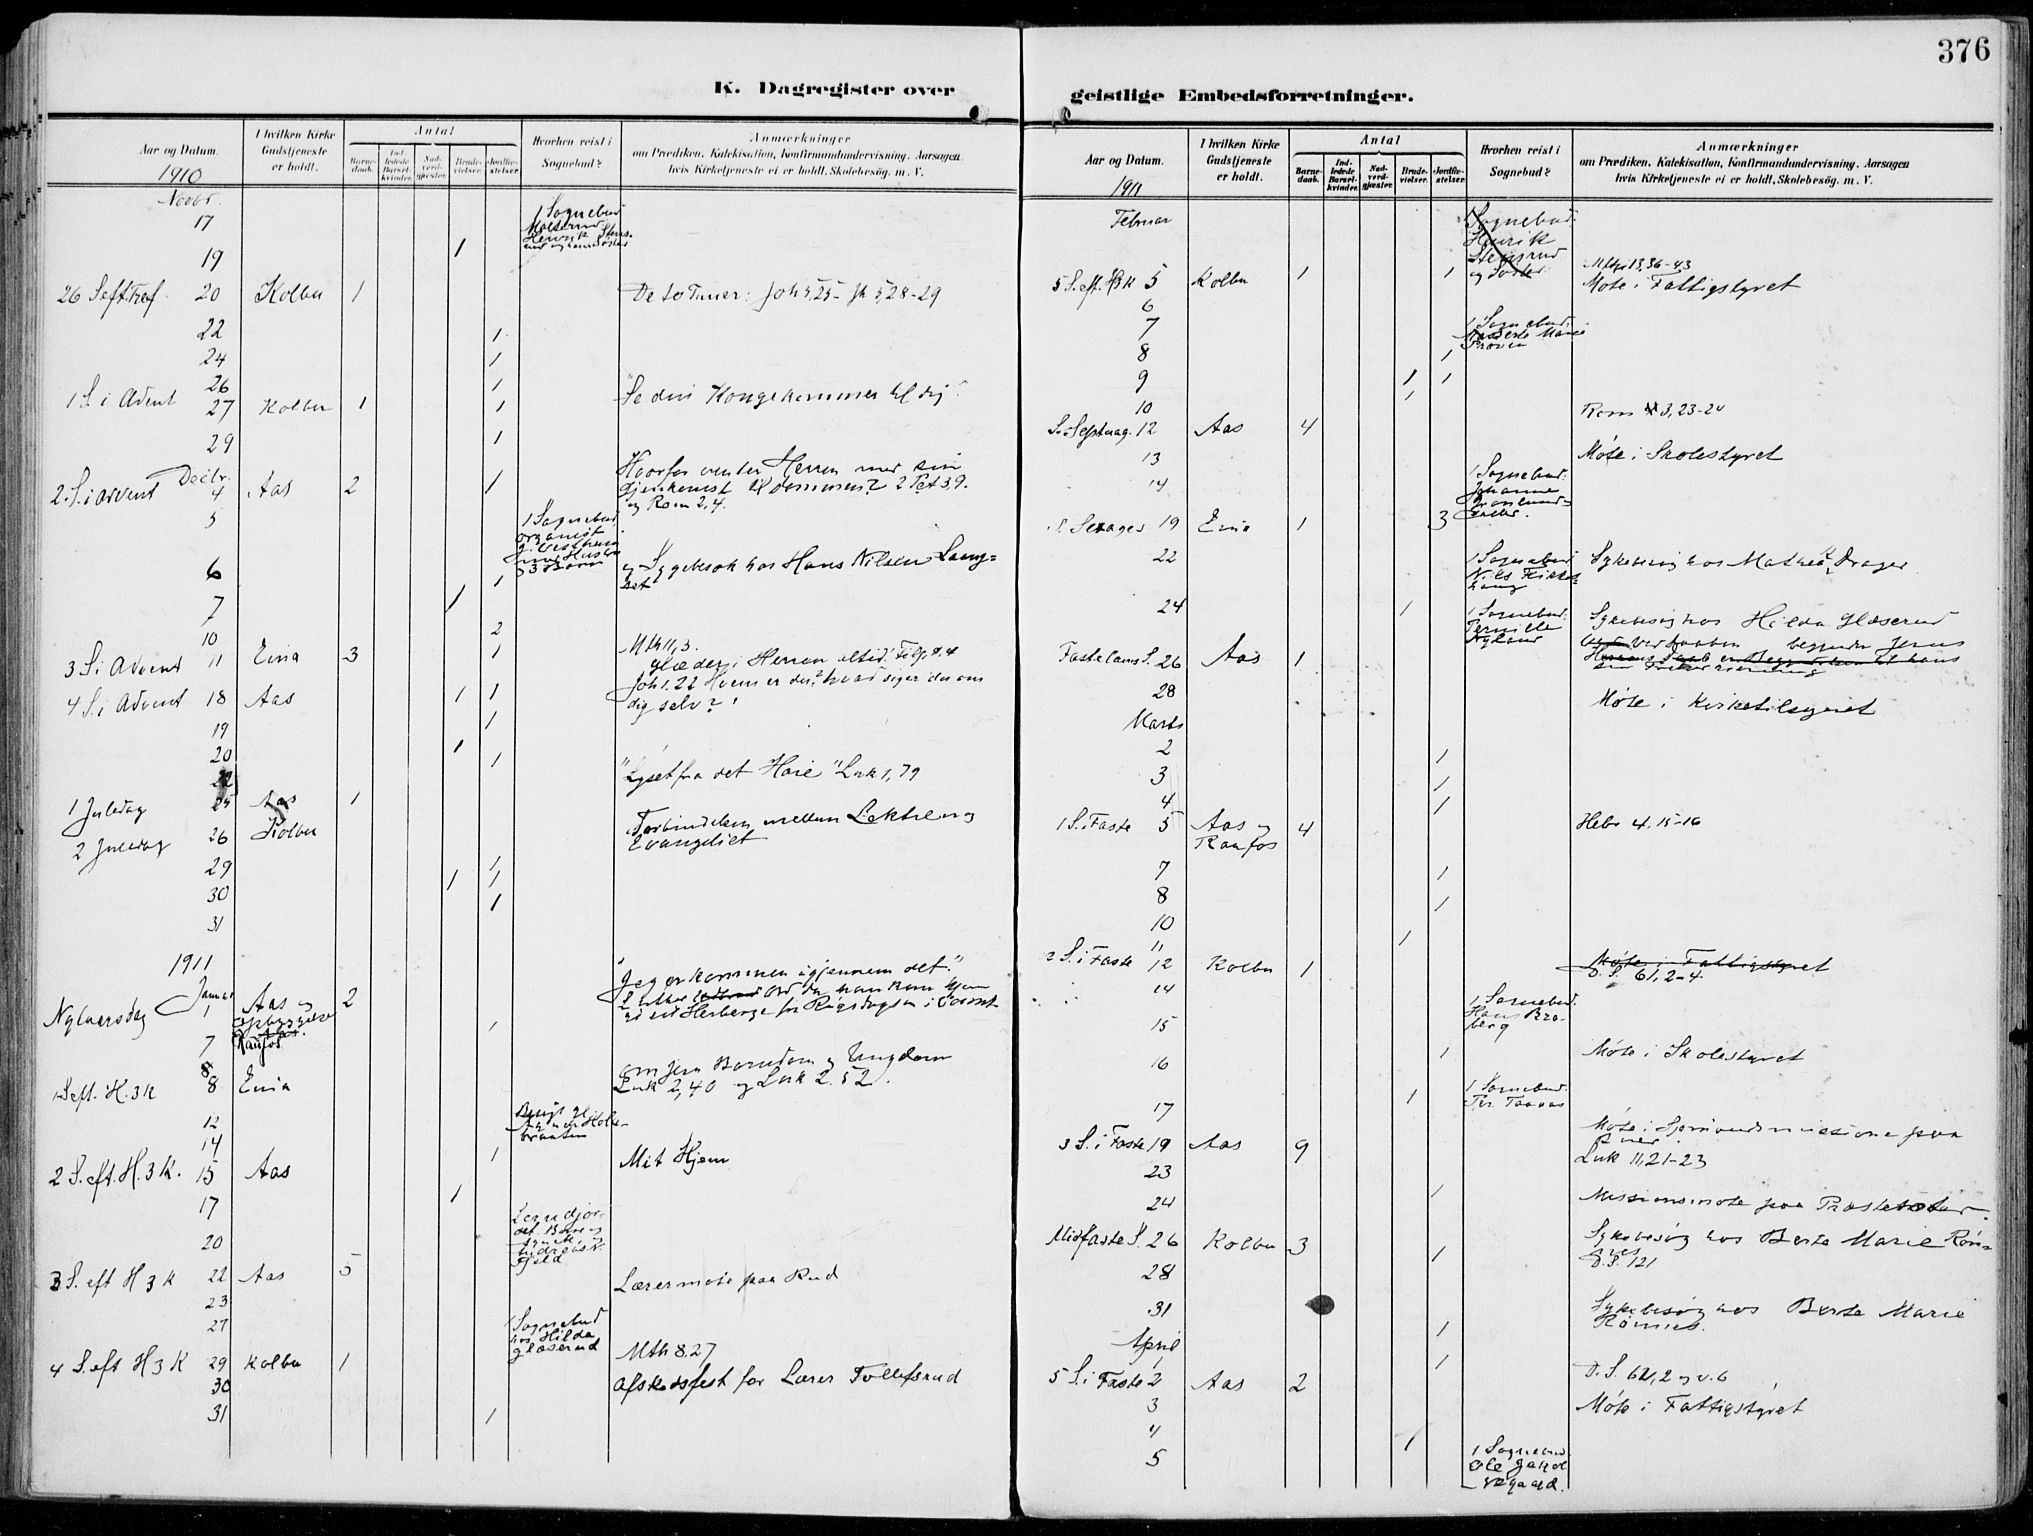 376
K. Dagregister over
Aar og Datum.
1910
I hvilken Kirke
Gudstjeneste
er holdt.
Antal
Barne-
daab.
Ind-
ledede
Barsel-
kvinder.
Nad-
verd-
gjester.
Brude-
vielser.
Jordfæ-
stelser.
Hvorhen reist i
Sognebud?
Anmærkninger
om Prædiken, Katekisation, Konfirmandundervisning, Aarsagen
hvis Kirketjeneste ei er holdt, Skolebesøg m. V.
Novbr.
17
1 Sognebud
Henrik Stens-
19 1
26 S eft Tref 20 Kolbu 1 De to Timer: Joh 5,25- Jh 5 28-29
22 1
24 1
26 1
1 S. i Advent 27 Kolbu 1 1 "Se din Konge kommer til dig"
29 1
Decbr.
2. S. i Advent 4 Aas 2 1 Hvorfor venter Herren med sin
gjenkomst til dommen? 2 Pet 3,9.
og Rom 2,4.
5 1 Sognebud
organist
3 Børn
6 1 og Sygebesøk hos Hans Nilsen Laang-
set
7 1
10 2
3 S. i Advent 11 Eina 3 1 Mth 11,3.
Glæder i Herren altid. Filip. 4.4
4 S. i Advent 18 Aas 1 1 Joh 1.22 Hvem er du? hvad siger du om
dig selv?
19 1
20 1 1
22
1 Juledag 25 Aas 1 "Lyset fra det Høie" Luk 1,79
2 Juledag 26 Kolbu Forbindelsen mellem Lektien og
Evangeliet
29 1
30 1 1
31 1
1911
Januar
Nytaarsdag 1 Aas og 2 "Jeg er kommen igjennem det."
Raufos
7 1
8
1 S eft. H. 3 K 8 Eina om Jesu Barndom og Ungdom
Luk 2,40 og Luk 2.52.
12
14 1
2 S. eft. H. 3 K. 15 Aas Mit Hjem
17 1
20
3 S. eft H 3 K 22 Aas 5 Lærermøte paa Rud
23
27 1 Sognebud
hos Hilda
Glæserud
4 S. eft H 3 K 29 Kolbu 1 Mth 8.27
30 Afskedsfest for Lærer Tollefsrud
31 1
geistlige Embedsforretninger.
Aar og Datum.
1911
I hvilken Kirke
Gudstjeneste
er holdt.
Antal
Barne-
daab.
Ind-
ledede
Barsel-
kvinder.
Nad-
verd-
gjester.
Brude-
vielser.
Jordfæ-
stelser.
Hvorhen reist i
Sognebud?
Anmærkninger
om Prædiken, Katekisation, Konfirmandundervisning, Aarsagen
hvis Kirketjeneste ei er holdt, Skolebesøg m. V.
Februar
Sognebud:
Henrik
Stensrud
og Søster
5 S. eft. H 3 K 5 Kolbu 1 1 Mth 13,36-43
Møte i Fattigstyret
6
7 1 Sognebud:
Berte Marie
8 1
9 1 1
10 1
S. Septuag. 12 Aas 4 Rom 3,23-24
13 Møte i Skolestyret
14 1 Sognebud:
Johanne
S. Sexages. 19 Eina 1 3
22 1 Sognebud
Nils
Sykebesøg hos Mathea Drager
24 1 1 Sognebud:
Pernille
Nyland
Sykebesøg hos Hilda Glæserud
Fastelavns S. 26 Aas 1
28 Møte i Kirketilsynet
Marts
2 1
3 1
4 1
1 S. i Faste 5 Aas og 4 Hebr 4,15-16
Raufos
7 1
8 1
10
11 1
2 S. i Faste 12 Kolbu 1 Møte i Fattigstyret
D. S. 61,2-4
14 1 Sognebud.
Hans Bra-
berg
15
16 1 Møte i Skolestyret
17 1 1 Sognebud.
3 S. i Faste 19 Aas 9 Luk 11,21-23
23
24 1 Missionsmøte paa
Midfaste S. 26 Kolbu 3 Sykebesøg hos Berte Marie Røn-
nes
D. S. 121
28 1
31 Sykebesøg hos Berte Marie
Rønnes.
April 1
1 1
5 S. i Faste 2 Aas 2 D. S. 62,2 og v. 6
3 Møte i Fattigstyret
4
5 1 1 Sognebud.
Ole